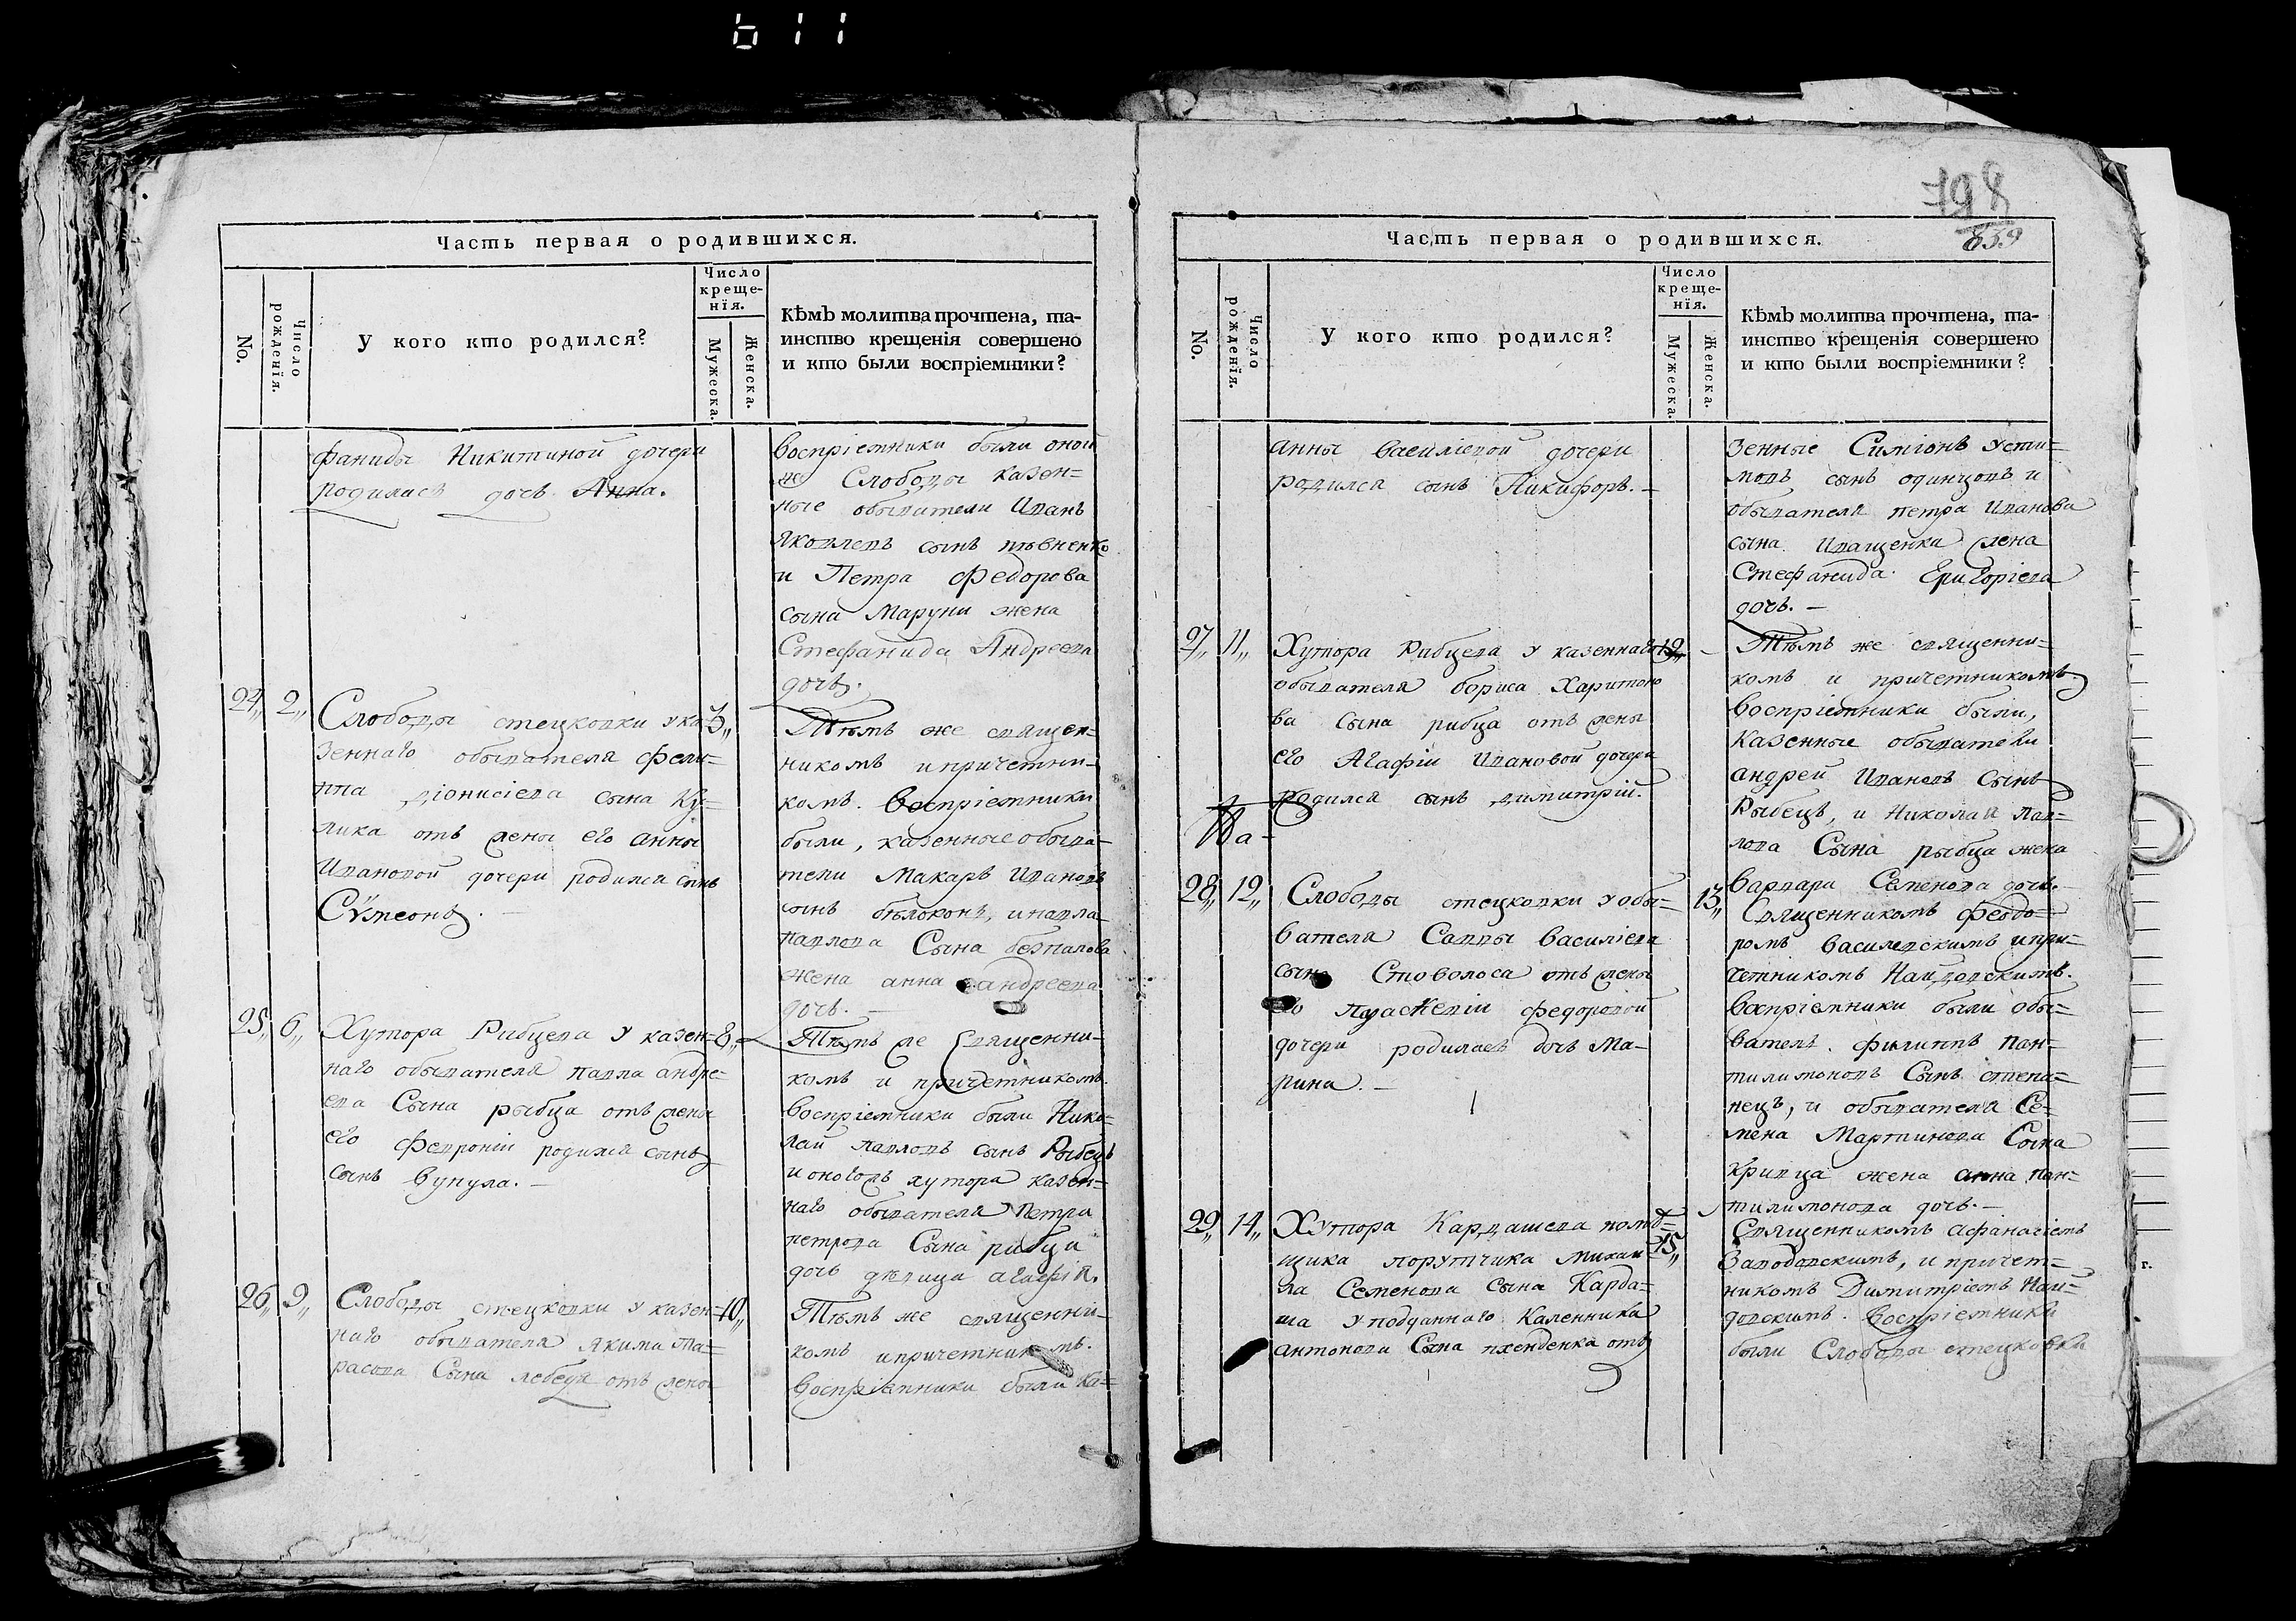 611
Часть первая о родившихся.
No.
Число рожденїя.
У кого кто родился?
Число
креще-
нїя.
Мужеска.
Женска.
Кѣмъ молитва прочтена, та-
инство крещенїя совершено
и кто были воспрїемники?
фаниды Никитиной дочери
родилась дочь Анна.
воспріемники были оной
же Слободы казен-
ные обыватели Иванъ
Яковлевъ сынъ пѣвненко
и Петра Федорова
сына Маруни жена
Стефанида Андреева
дочь.
24,, 2,,
Слободы стецковки у ка- 3,,
зеннаго обывателя Фели-
ппа діонисіева сына Ку-
лика отъ жены его анны
Ивановой дочери родился сынъ
Сѵмеонъ. —
Тѣмъ же священ-
никомъ и причетни-
комъ. Воспріемники
были, казенные обыва-
тели Макаръ Ивановъ
сынъ бѣлоконъ, и
павлова Сына безпалова
жена анна андреева
дочь. —
25,, 6,,
Хутора Рибцева у казен- 8,,
наго обывателя павла андре-
ева Сына рыбца отъ жены
его Февроніи родился сынъ
сынъ Вукула. —
Тѣмъ же Священни-
комъ и причетникомъ.
воспріемники были Нико-
лай павловъ сынъ Рыбецъ
и оного хутора казен-
наго обывателя Петра
петрова Сына рибца
дочь дѣвица агафія.
26,, 9,,
Слободы стецковки у казен- 10,,
наго обывателя якима Та-
расова Сына лебедя отъ жены
Тѣмъ же священни-
комъ и причетникомъ.
воспріемники были ка-
798
839
Часть первая о родившихся.
No.
Число рожденїя.
У кого кто родился?
Число
креще-
нїя.
Мужеска.
Женска.
Кѣмъ молитва прочтена, та-
инство крещенїя совершено
и кто были воспрїемники?
анны василіевой дочери
родился сынъ Никифоръ. —
зенные Симіонъ Усти-
мовъ сынъ одинцовъ и
обывателя петра Иванова
сына Иващенка жена
Стефанида Григоріева
дочь. —
27,, 11,,
Хутора Рибцева у казеннаго 12,, —
обывателя бориса Харитоно
ва сына рибца отъ жены
его Агафіи Ивановой дочери
родился сынъ димитрій.
Тѣмъ же священни-
комъ и причетникомъ
воспріемники были,
казенные обыватели
андрей Ивановъ Сынъ
Рыбецъ, и Николая Пав-
лова Сына рыбца жена
варвара Семенова дочь. —
28,, 12,,
Слободы стецковки у обы- 13,,
вателя Саввы василіева
сына Стоволоса отъ жены
его федоровой
дочери родилась дочь Ма-
рина. —
Священникомъ Феодо-
ромъ василевскимъ и при-
четникомъ Найдовскимъ.
воспріемники были обы-
ватель филиппъ пан-
тилимоновъ Сынъ степа-
нецъ, и обывателя Се-
мена Мартинова Сына
кривца жена анна пан-
тилимонова дочь. —
29,, 14,,
Хутора Кардашева помѣ- 15,,
щика порутчика михаи
ла Семенова Сына Карда-
ша у подданнаго Каленника
антонова Сына отъ
Священникомъ Афанасіемъ
и причет-
никомъ Димитріемъ Най-
довскимъ. Воспріемники
были Слободы стецковки